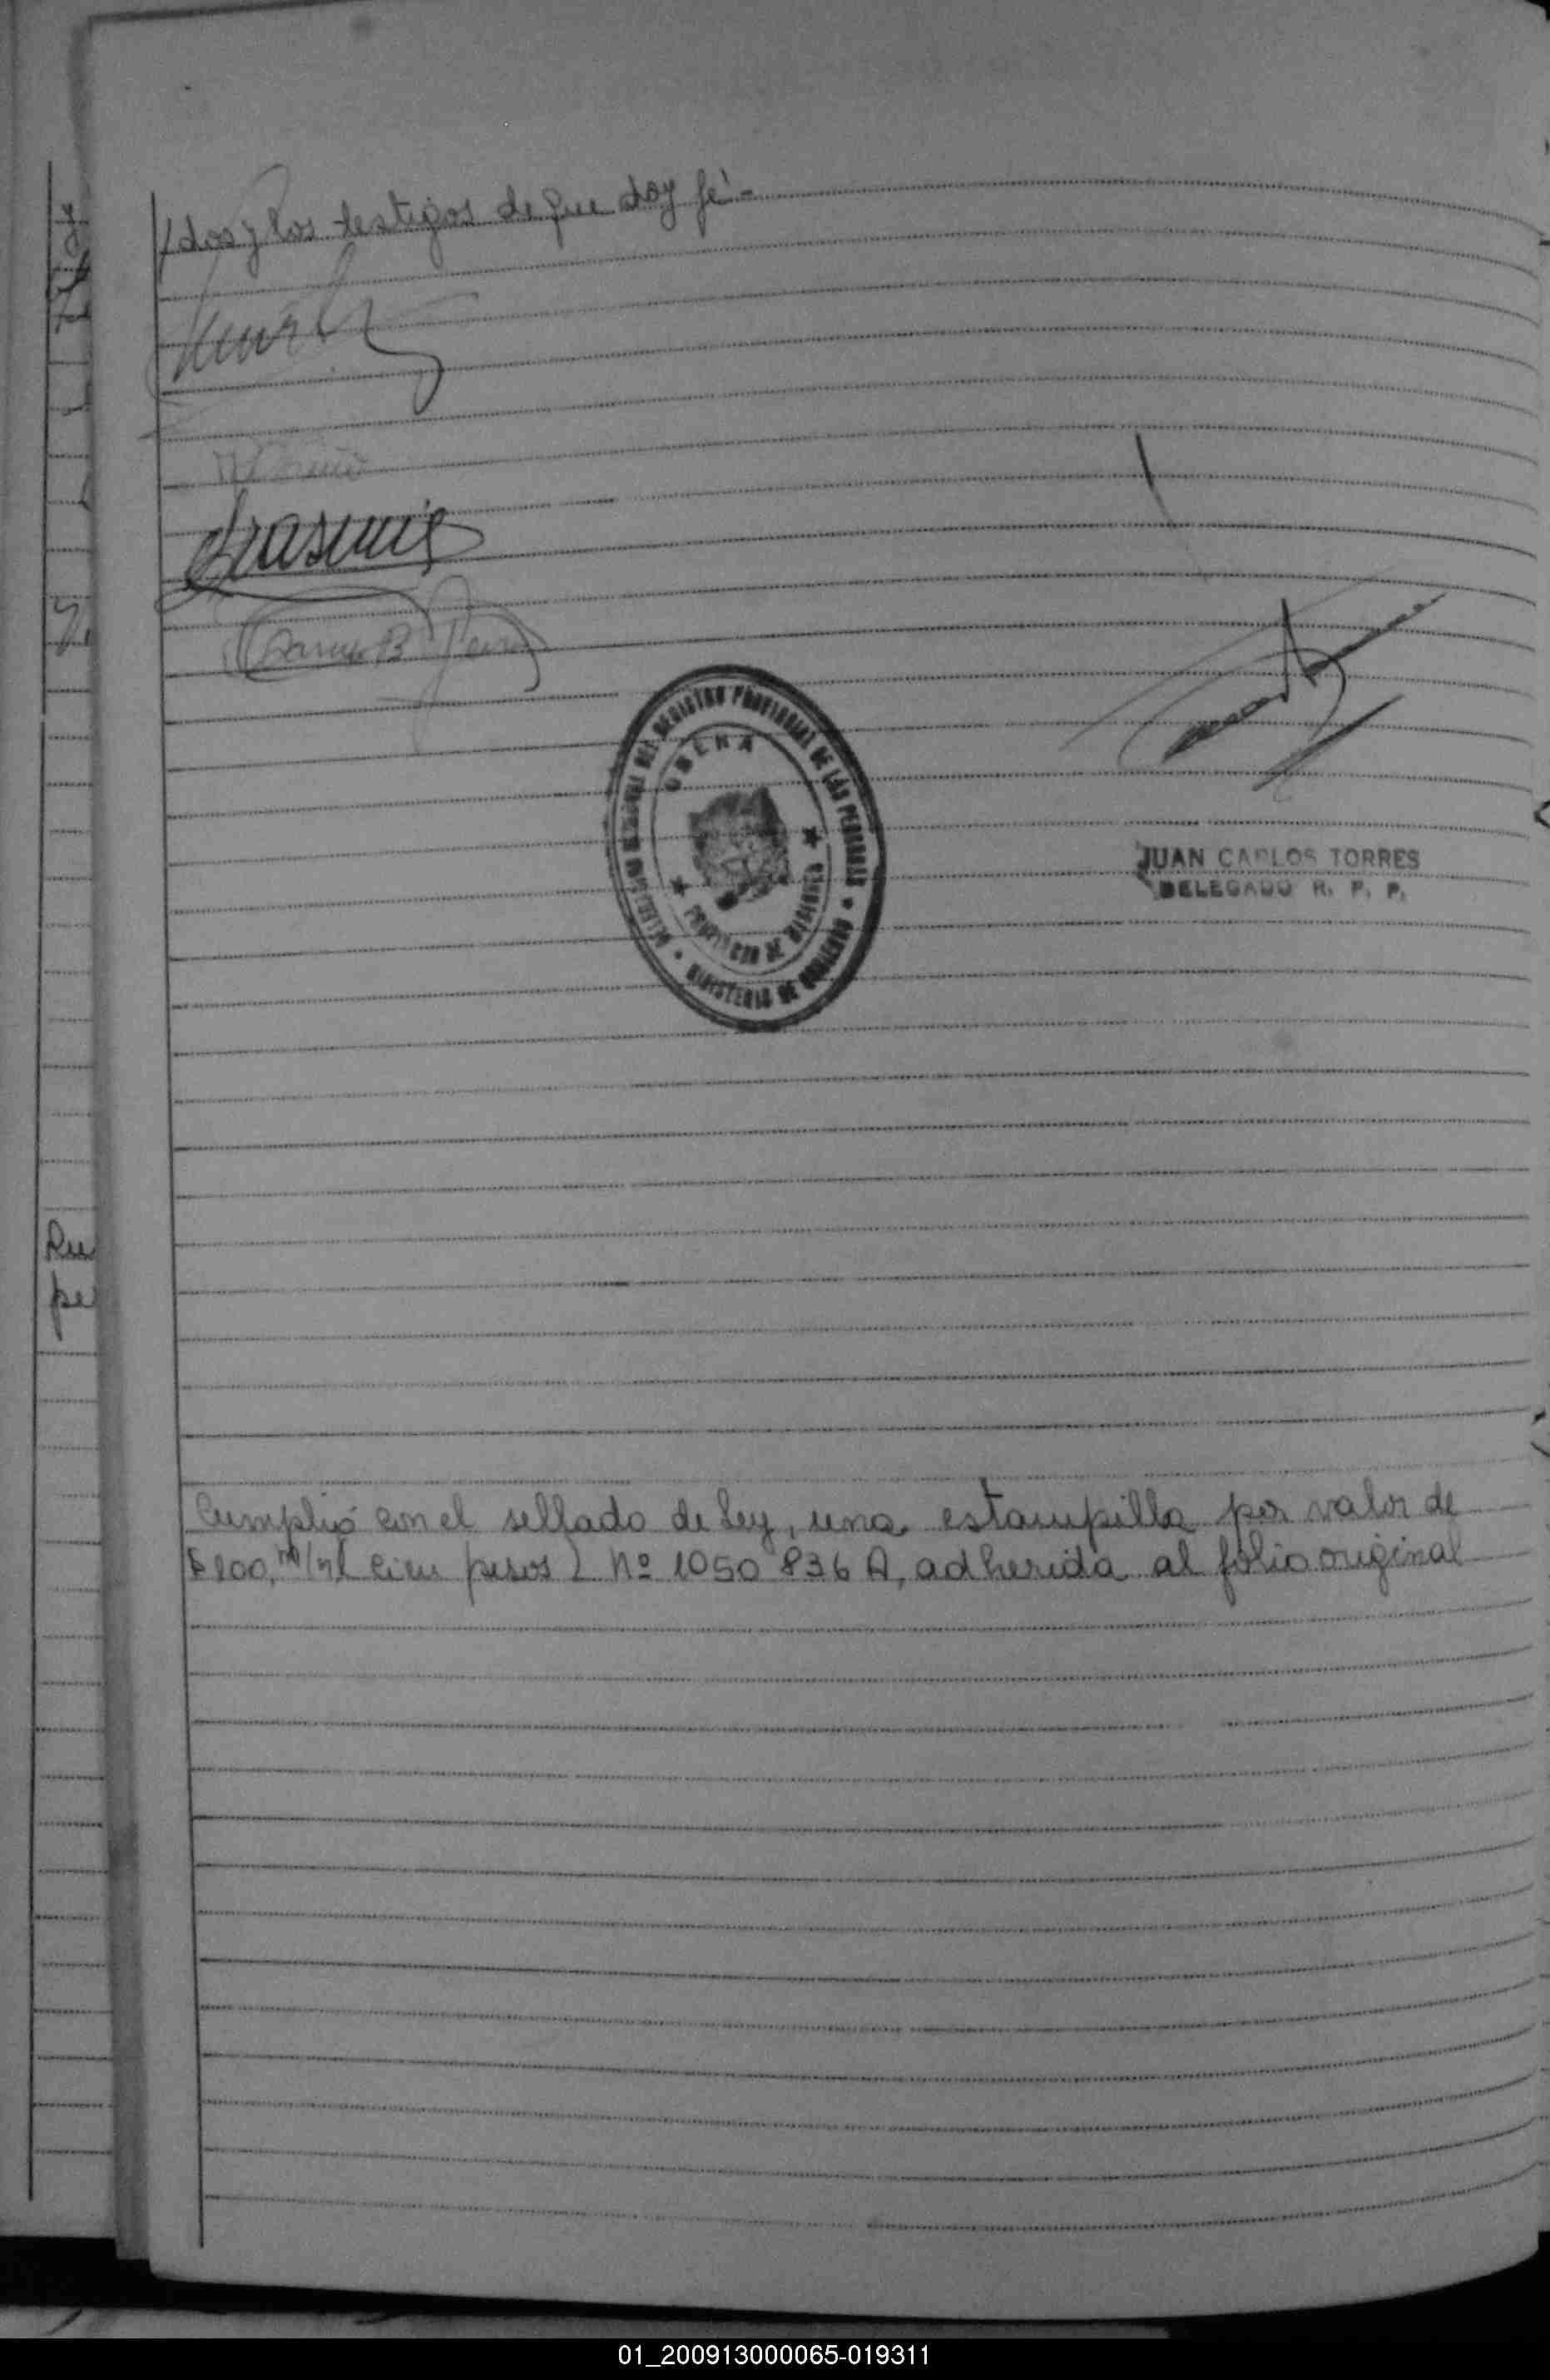 /dos y los testigos de que doy fé.-
DIRECCION GENERAL DEL REGISTRO PROVINCIAL DE LAS PERSONAS • MINISTERIO DE GOBIERNO •
OBERA
★ PROVINCIA DE MISIONES ★
JUAN CARLOS TORRES
DELEGADO R. P. P.
Ru
pe
Cumplió con el sellado de Ley, una estampilla por valor de
$ 100, m/n ( cien pesos ) Nº 1050836 A, adherida al folio original
01_200913000065-019311